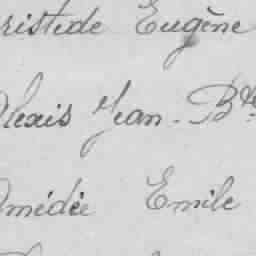 ristide Eugène
Alexis Jean-Bte
Amédée Emile